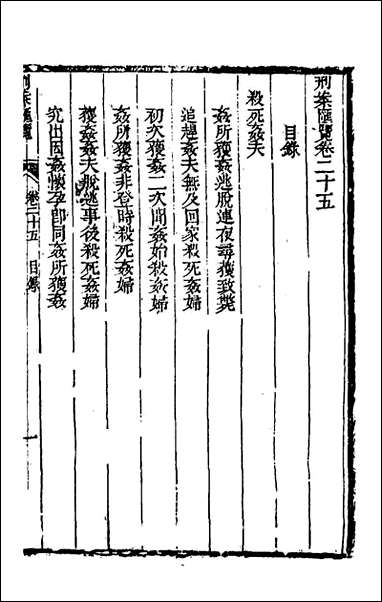 刑案匯覽卷二十五
目錄
殺死姦夫
姦所獲姦逃脫連夜尋獲致斃
追趕姦夫無及回家殺死姦婦
初次獲姦二次聞姦始殺姦婦
姦所獲姦非登時殺死姦婦
獲姦姦夫脫逃事後殺死姦婦
究出因姦懷孕卽同姦所獲姦
刑案匯覽 卷二十五 目錄 一